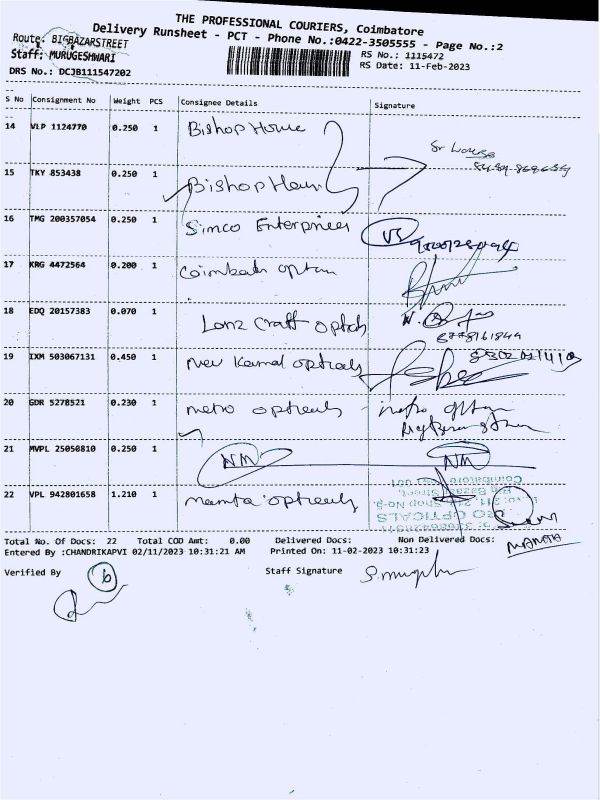 THE PROFESSIONAL COURIERS, Coimbatore
Delivery Runsheet - PCT - Phone No.:0422-3505555 - Page No.:2
Route: BIGBAZARSTREET
Staff: MURUGESHWARI
RS No.: 1115472
RS Date: 11-Feb-2023
DRS No.: DCJB111547202
S No Consignment No Weight PCS Consignee Details Signature
14 VLP 1124770 0.250 1 Bishop House
15 TKY 853438 0.250 1 Bishop Hous
16 TMG 200357054 0.250 1 Simco Enterprises
17 KRG 4472564 0.200 1 Coimbato optica
18 EDQ 20157383 0.070 1 Lenz Craft optcls
19 IXM 503067131 0.450 1 New Kamal opticals
20 GDR 5278521 0.230 1 metro opticals metro
21 MVPL 25050810 0.250 1 NM NM
22 VPL 942801658 1.210 1 mamta opticals
OPTICALS
Coimbatore
Total No. Of Docs: 22 Total COD Amt: 0.00 Delivered Docs: Non Delivered Docs:
MAMTA
Entered By :CHANDRIKAPVI 02/11/2023 10:31:21 AM Printed On: 11-02-2023 10:31:23
Verified By Staff Signature